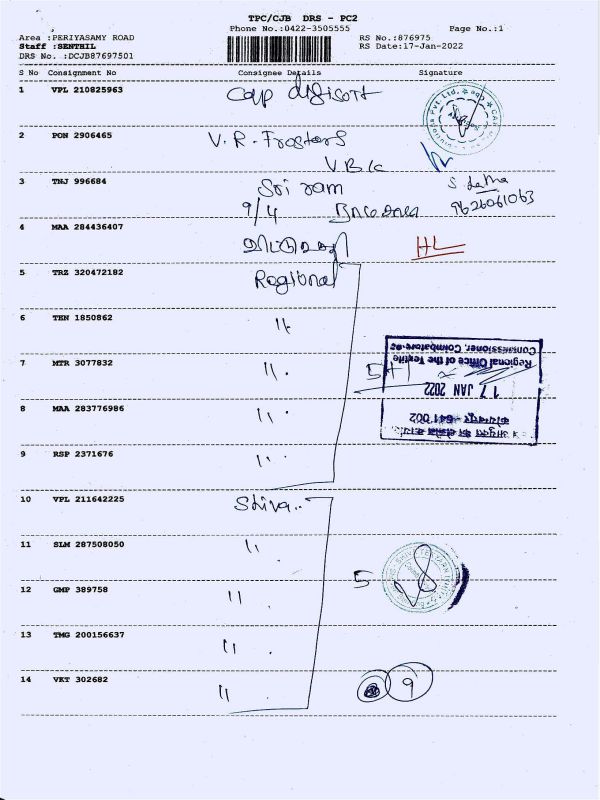 TPC/CJB DRS - PC2
Phone No.:0422-3505555
Page No.:1
Area :PERIYASAMY ROAD
RS No.:876975
Staff :SENTHIL
RS Date:17-Jan-2022
DRS No. :DCJB87697501
S No Consignment No Consignee Details Signature
1 VPL 210825963
2 PON 2906465 V. R. Frosters
V B K
3 TNJ 996684 Sri ram
9/4
S Latha
9626061063
4 MAA 284436407 HL
5 TRZ 320472182 Regional
6 TEN 1850862 "
7 MTR 3077832 "
8 MAA 283776986 "
9 RSP 2371676 "
Regional Office of the Textile
Commissioner, Coimbatore-02
17 JAN 2022
कोयम्बतूर - 641 002
10 VPL 211642225 Shiva
11 SLM 287508050 "
5
12 GMP 389758 "
13 TMG 200156637 "
14 VKT 302682 "
9